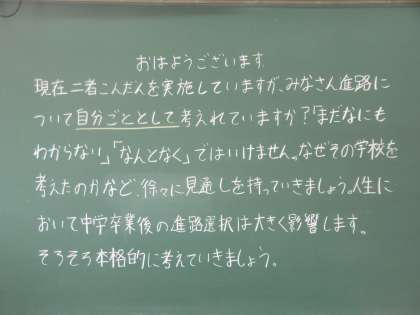 おはようございます
現在二者こんだんを実施していますが、みなさん進路に
ついて自分ごととして考えれていますか?「まだなにも
わからない」「なんとなく」ではいけません。なぜその学校を
考えたのかなど、徐々に見通しを持っていきましょう。人生に
おいて中学卒業後の進路選択は大きく影響します。
そろそろ本格的に考えていきましょう。